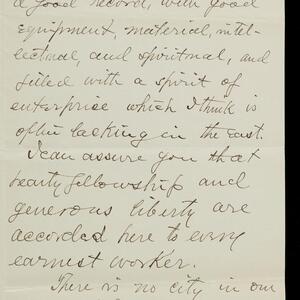 a good record, with good
equipment, material, intel-
lectual, and spiritual, and
filled with a spirit of
enterprise which I think is
often lacking in the East.
I can assure you that
hearty fellowship and
generous liberty are
accorded here to every
earnest worker.
There is no city in our